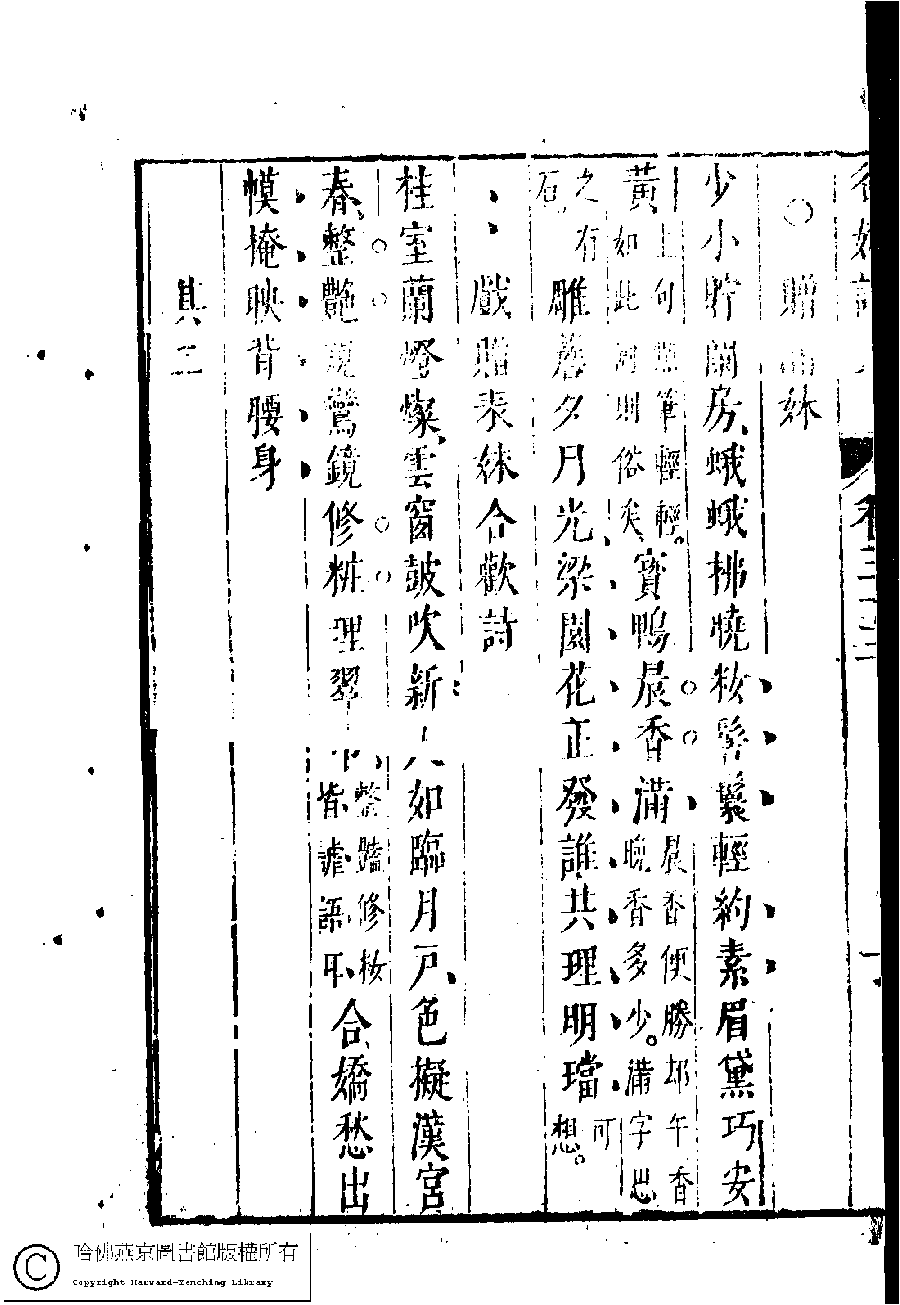 ○贈□妹
少小貯蘭房蛾蛾拂曉妝鬓鬟輕約素眉黛巧安
黃上句□筆輕輕。如此□則俗矣、寶鴨晨香滿晨香便勝却午香晚香多少。滿字思
之有石、雕簷夕月光梁園花正發誰共理明璫可想。
戲贈表妹合歡詩
桂室蘭燈燦、雲窗鼓吹新人如臨月戸色擬漢宮
春整艷□鸞鏡修粧理翠□整豔修妝皆虛語耳合嬌愁出
幙掩映背腰身
其二
卷三
哈佛燕京圖書館版權所有
Copyright Harvard-Yenching Library